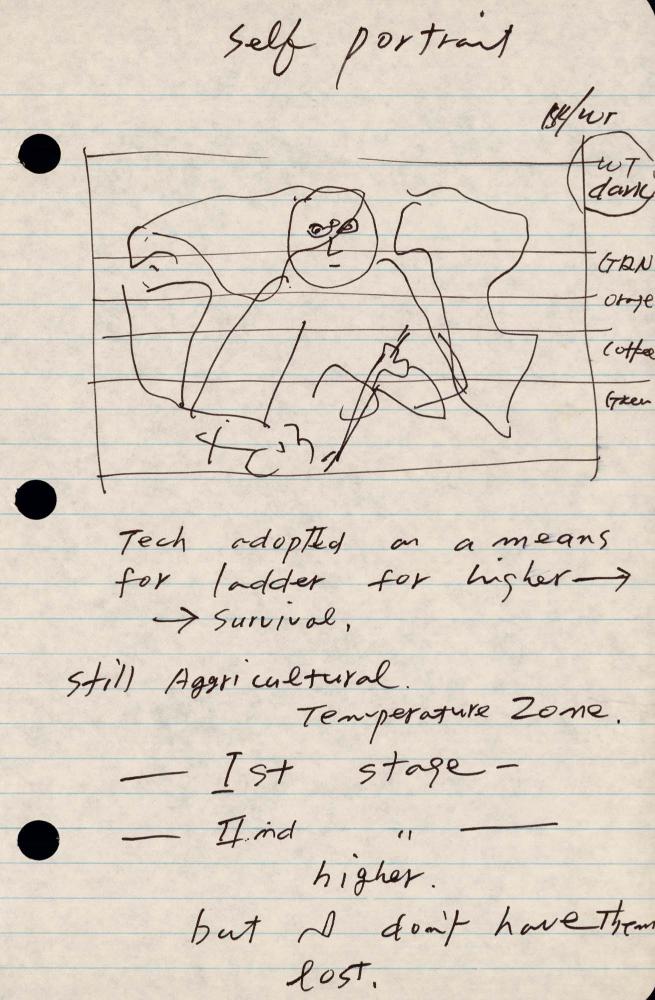 self portrait
BK/WT
WT
dark
GRN
Orange
Coffee
Green
Tech adopted as a means
for ladder for higher →
→ survival.
still Aggricultural.
Temperature Zone.
— Ist stage —
— IInd " —
higher.
but I don't have Them
lost.